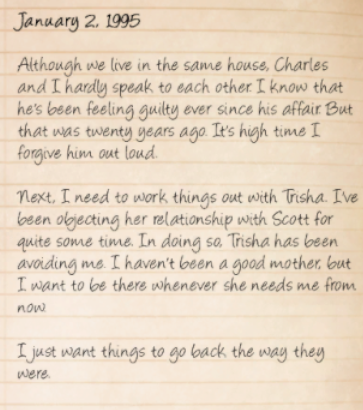 January 2, 1995
Although we live in the same house, Charles
and I hardly speak to each other. I know that
he's been feeling guilty ever since his affair. But
that was twenty years ago. It's high time I
forgive him out loud.
Next, I need to work things out with Trisha. I've
been objecting her relationship with Scott for
quite some time. In doing so, Trisha has been
avoiding me. I haven't been a good mother, but
I want to be there whenever she needs me from
now.
I just want things to go back the way they
were.